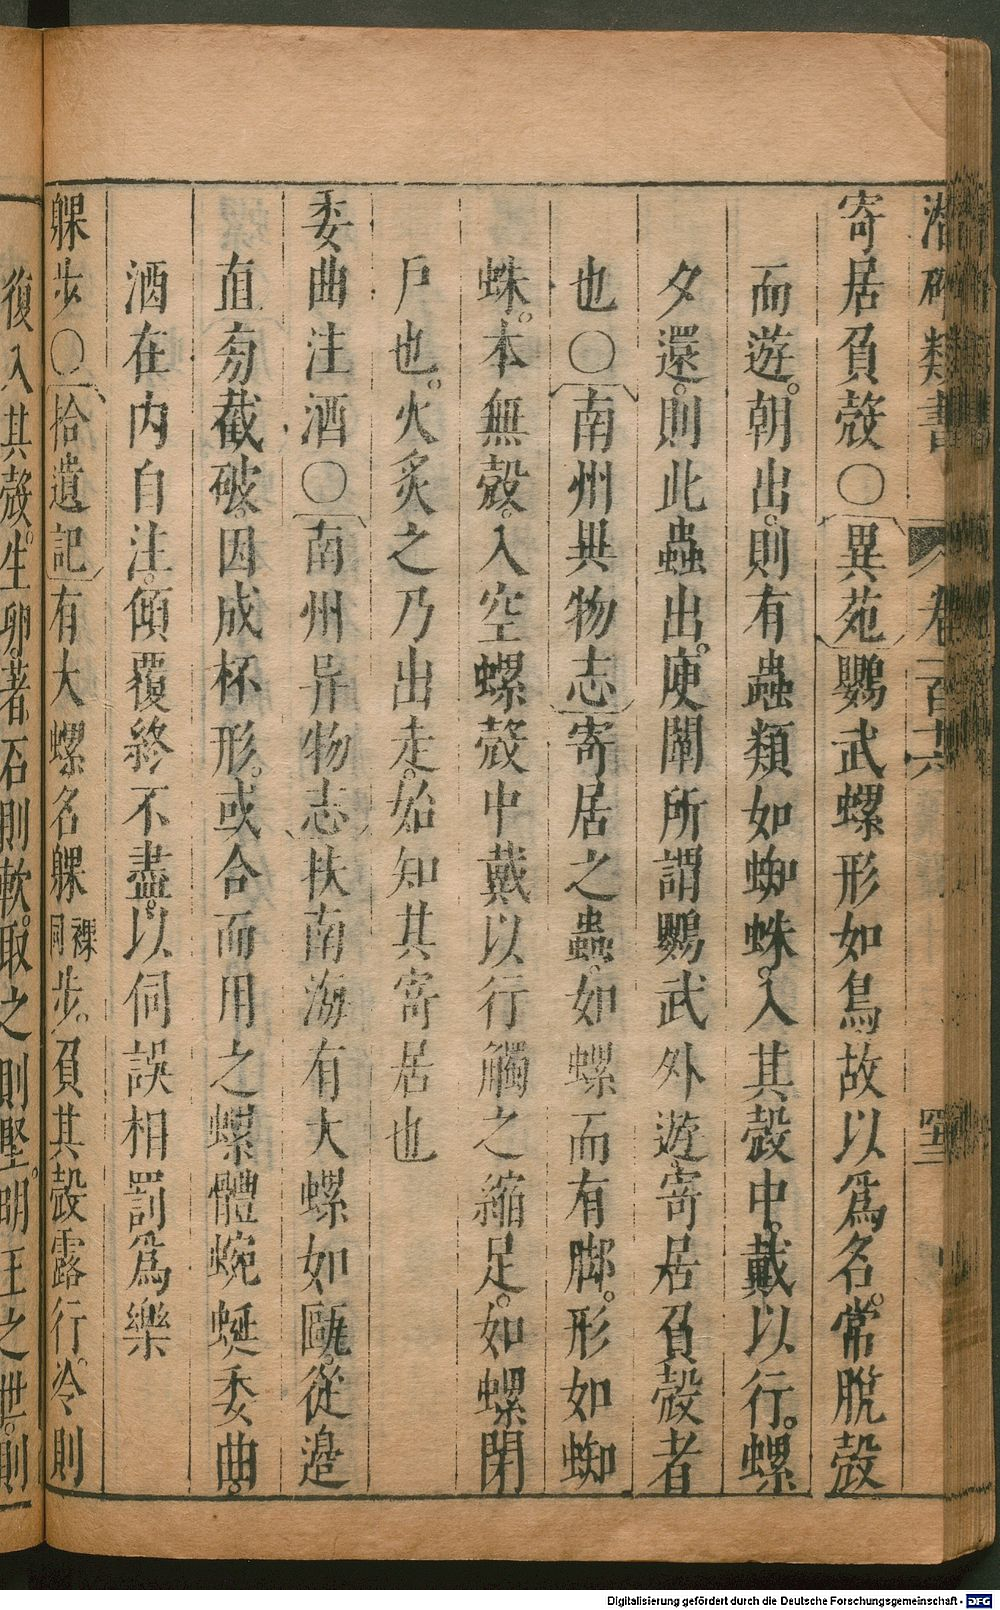 潛確類書 卷一百十六 四三
寄居負殼〇異苑鸚武螺形如鳥故以爲名。常脫殼
而遊。朝出。則有蟲類如蜘蛛。入其殼中。戴以行。螺
夕還。則此蟲出。庾闡所謂鸚武外遊。寄居負殼者
也〇南州異物志寄居之蟲。如螺而有脚。形如蜘
蛛。本無殼。入空螺殼中戴以行觸之縮足。如螺閉
戶也。火炙之乃出走。始知其寄居也
委曲注酒〇南州异物志扶南海有大螺如甌。從邉
直旁截破。因成杯形。或合而用之螺體蜿蜒委曲。
酒在内自注。傾覆終不盡。以伺誤相罰爲樂
躶步〇拾遺記有大螺名躶裸同步。負其殼露行。冷則
復入其殼。生卵。著石則軟。取之則堅。明王之世。則
Digitalisierung gefördert durch die Deutsche Forschungsgemeinschaft - DFG